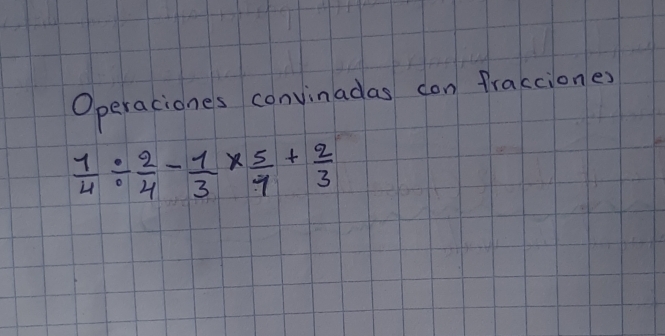 Operaciones convinadas con fracciones
1/4 ÷ 2/4 - 1/3 × 5/7 + 2/3